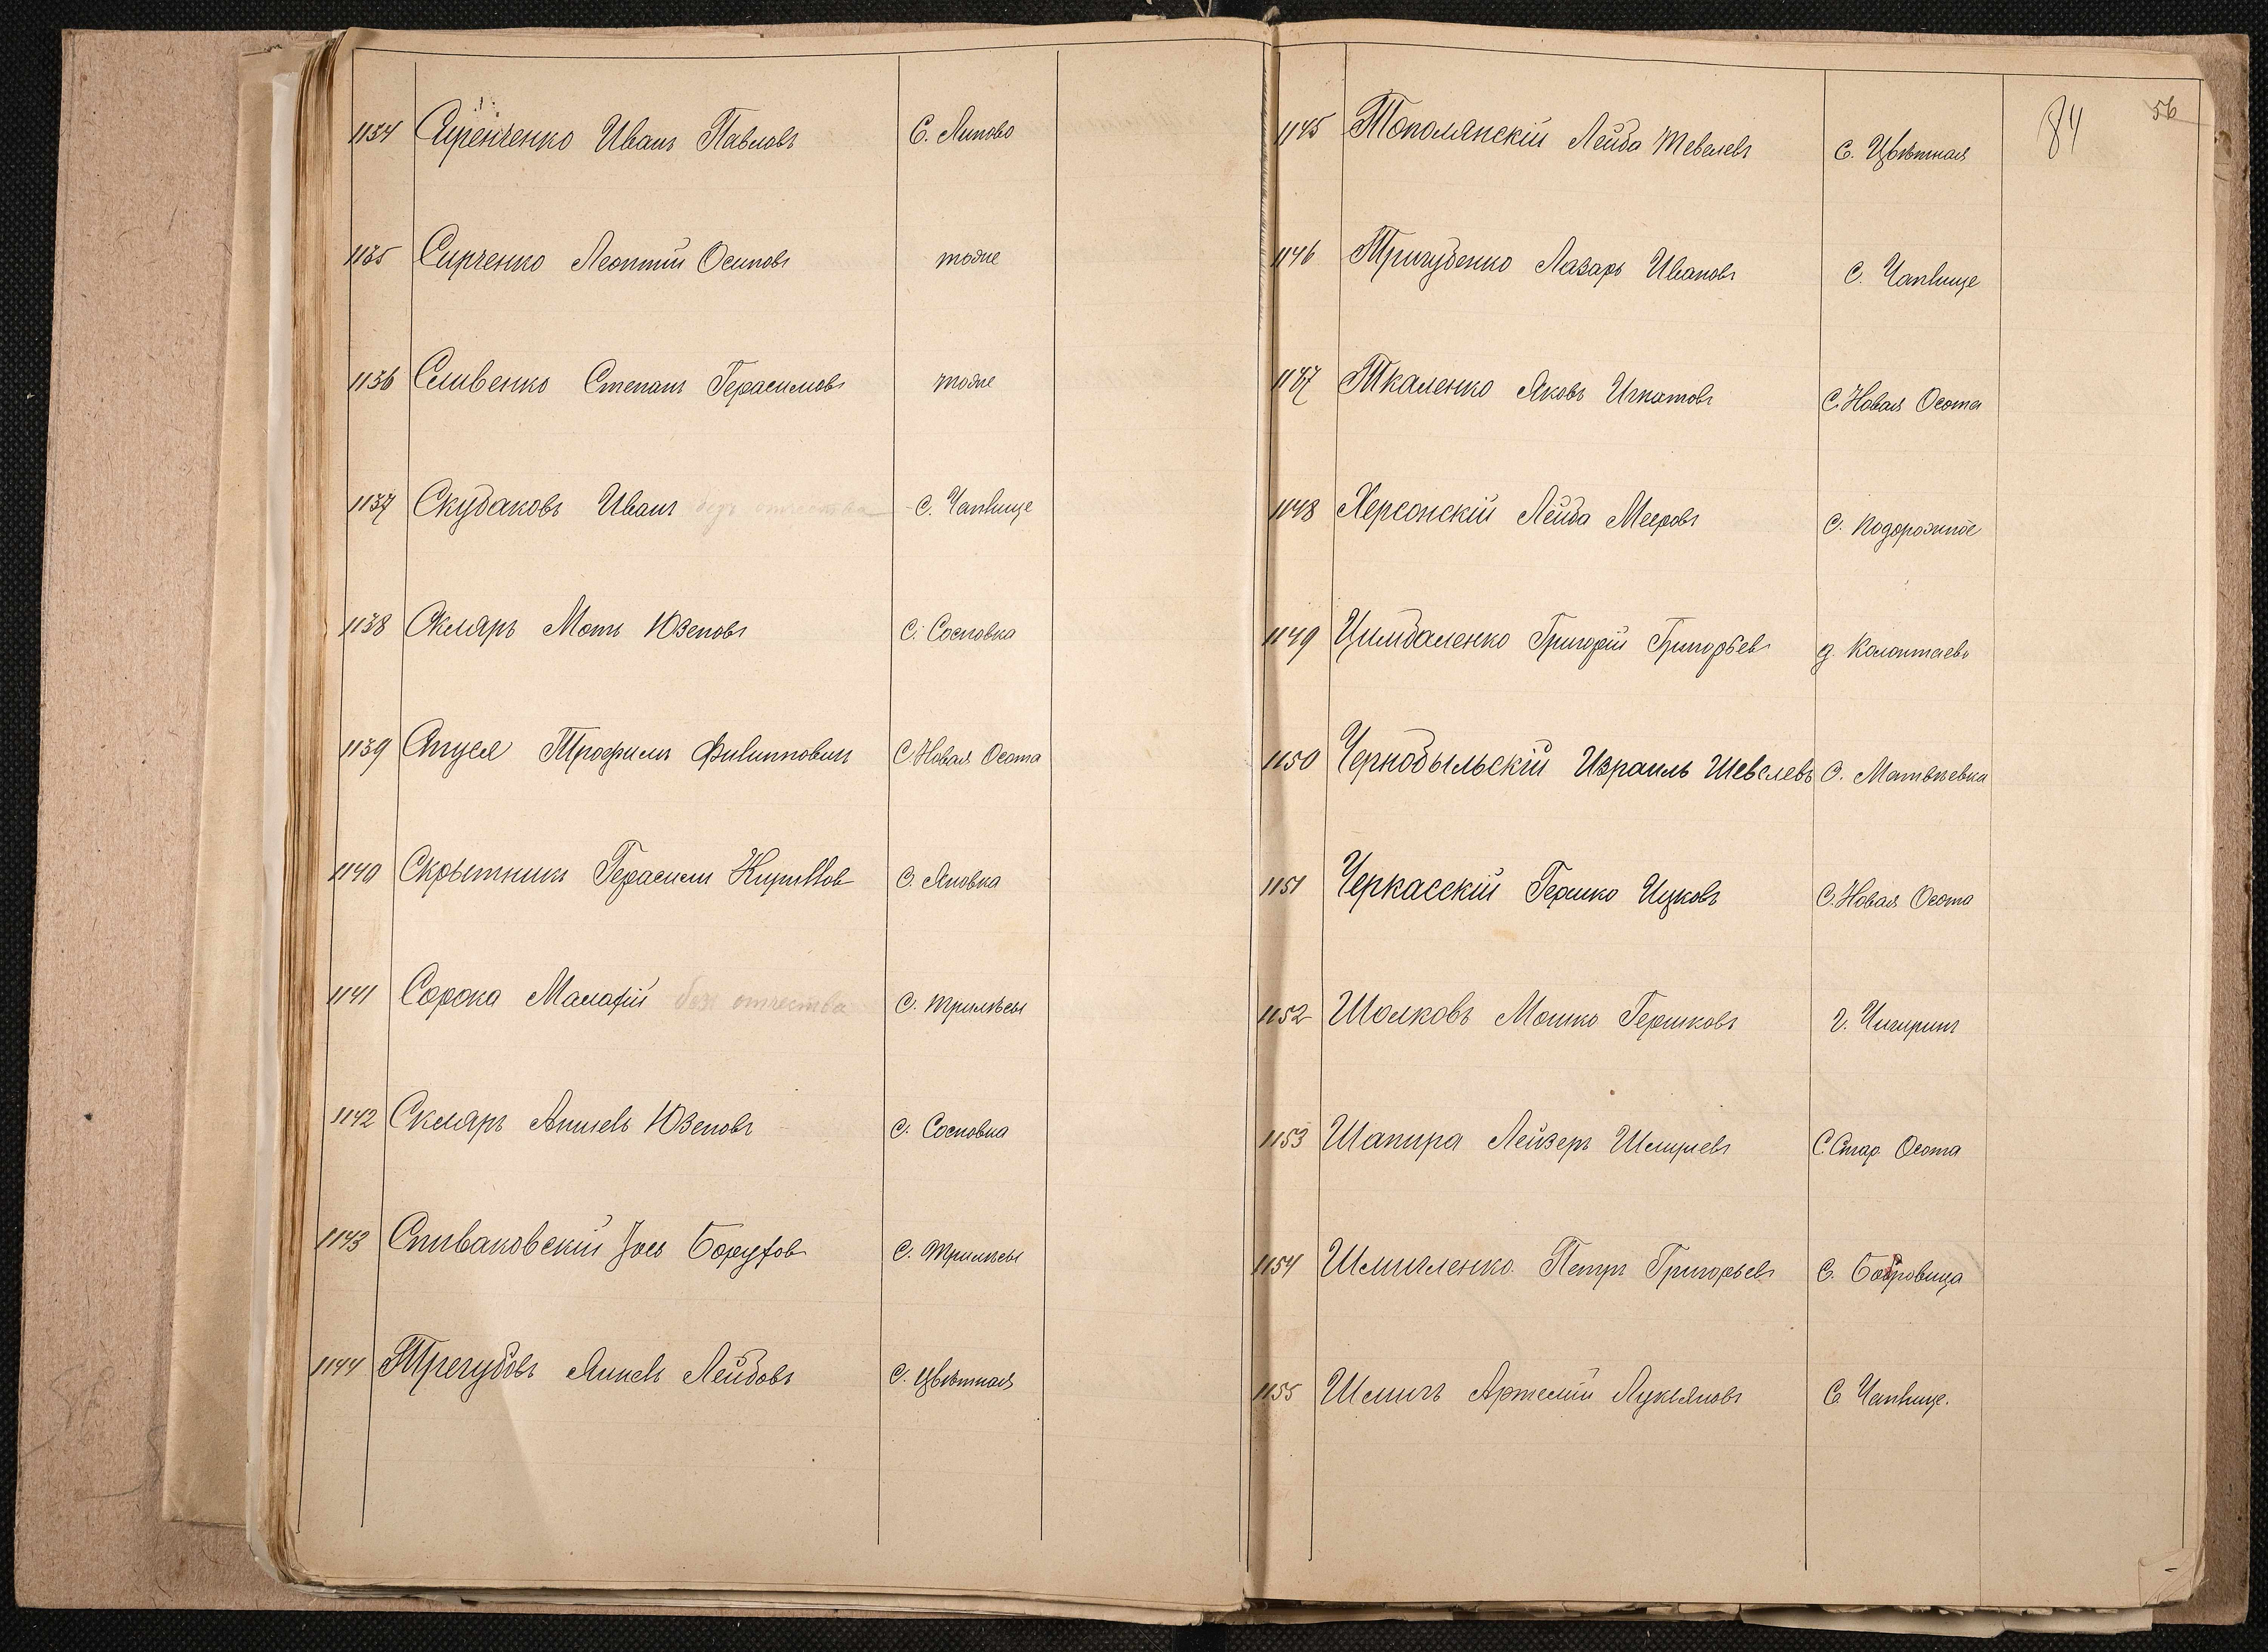 1134 Сиренченко Иванъ Павловъ С. Липово
1135 Сирченко Леонтій Осиповъ тоже
1136 Сливенко Степанъ Герасимовъ тоже
1137 Скубаковъ Иванъ безъ отчества С. Чаплище
1138 Скляръ Моть Юзеповъ С. Сосновка
1139 Трофимъ Филипповичъ С. Новая Осота
1140 Скрытникъ Герасимъ Кирилловъ С. Яновка
1141 Сорока Малафій безъ отчества С. Трилѣсы
1142 Скляръ Юзеповъ С. Сосновка
1143 Спиваковскій Іось Боруховъ С. Трилѣсы
1144 Трегубовъ Янкель Лейбовъ С. Цвѣтная
84
56
1145 Тополянскій Лейба Тевелевъ С. Цвѣтная
1146 Тригубенко Лазарь Ивановъ С. Чаплище
1147 Ткаленко Яковъ Игнатовъ С. Новая Осота
1148 Херсонскій Лейба Мееровъ С. Подорожное
1149 Цимбаленко Григорій Григорьевъ д. Калантаевъ
1150 Чернобыльскій Израиль Шевелевъ С. Матвѣевка
1151 Черкасскій Гершко Ицковъ С. Новая Осота
1152 Шолковъ Мошко Гершковъ г. Чигиринъ
1153 Шапира Лейзеръ Шмулевъ С. Стар. Осота
1154 Шмигленко Петръ Григорьевъ С. Бобровица
1155 Шмигъ Артемій Лукьяновъ С. Чаплище.